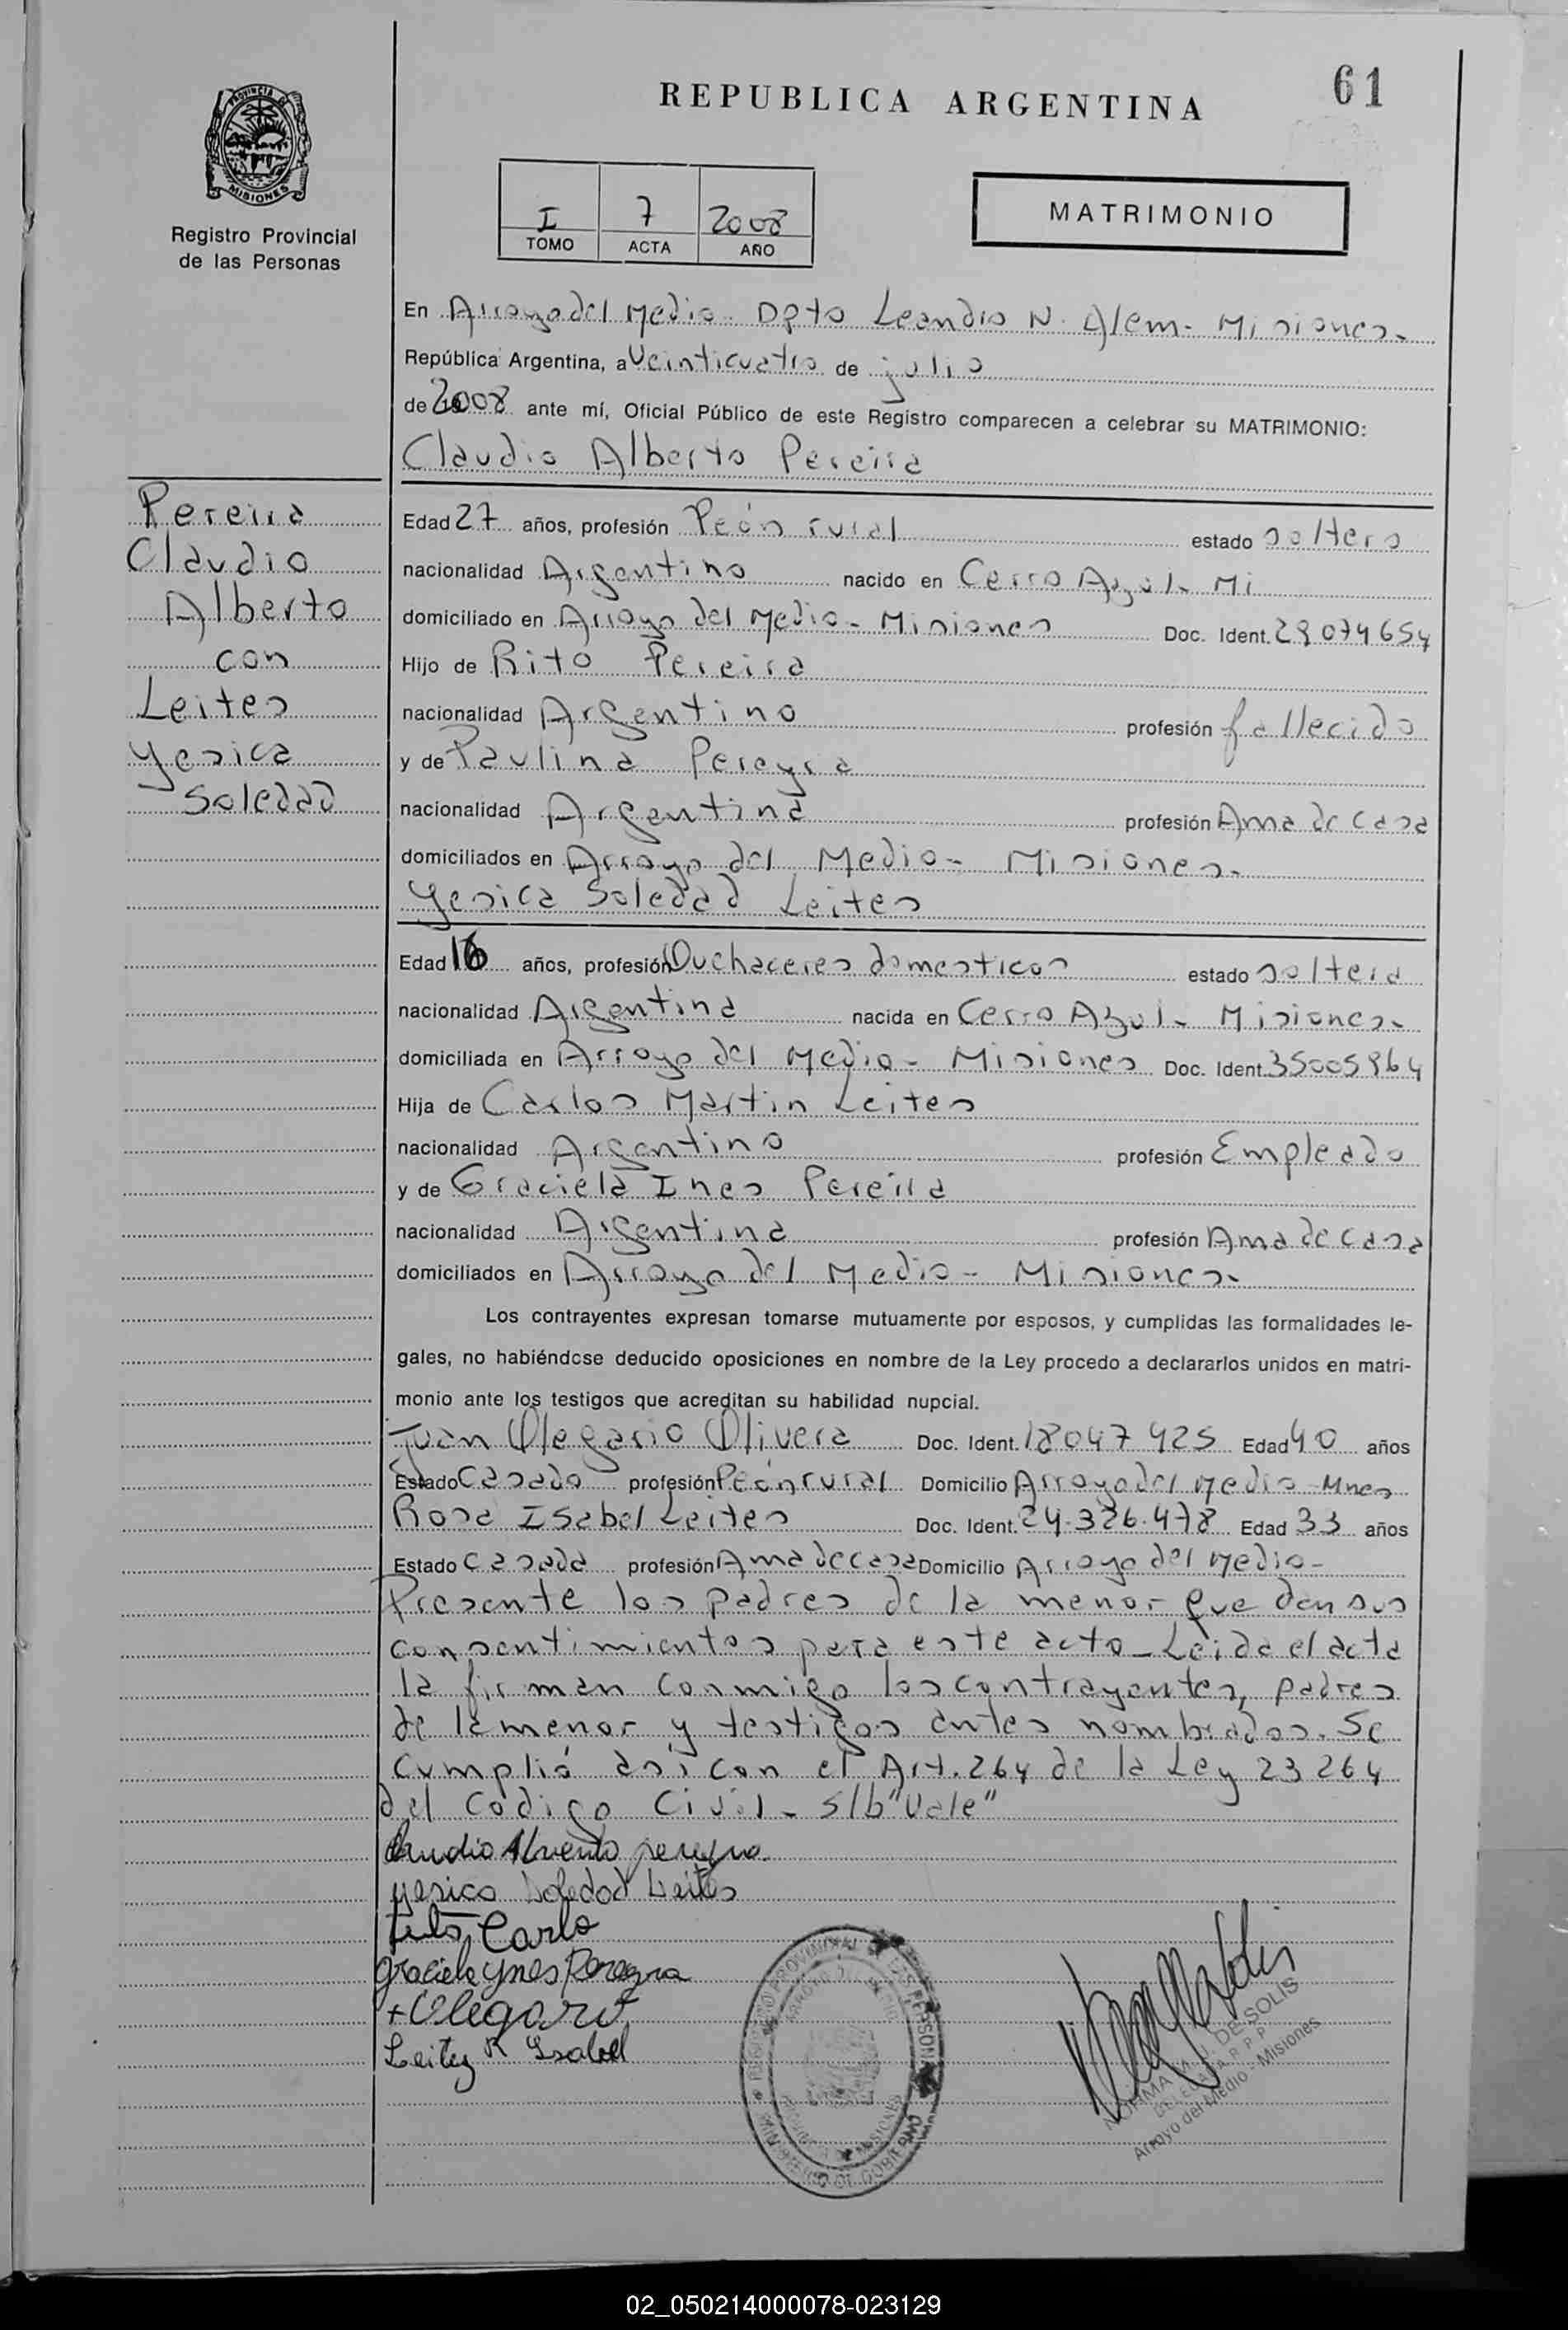 61
REPUBLICA ARGENTINA
PROVINCIA DE
MISIONES
Registro Provincial
de las Personas
I 7 2008
TOMO ACTA AÑO
MATRIMONIO
En Arroyo del Medio - Dpto Leandro N. Alem - Misiones -
República Argentina, a Veinticuatro de julio
de 2008 ante mí, Oficial Público de este Registro comparecen a celebrar su MATRIMONIO:
Claudio Alberto Pereira
Pereira
Claudio
Alberto
con
Leites
Yesica
Soledad
Edad 27 años, profesión Peón rural estado soltero
nacionalidad Argentino nacido en Cerro Azul - Mi
domiciliado en Arroyo del Medio - Misiones Doc. Ident. 29074654
Hijo de Rito Pereira
nacionalidad Argentino profesión fallecido
y de Paulina Pereyra
nacionalidad Argentina profesión Ama de casa
domiciliados en Arroyo del Medio - Misiones.
Yesica Soledad Leites
Edad 16 años, profesión Quehaceres domesticos estado soltera
nacionalidad Argentina nacida en Cerro Azul - Misiones -
domiciliada en Arroyo del Medio - Misiones Doc. Ident. 35005964
Hija de Carlos Martin Leites
nacionalidad Argentino profesión Empleado
y de Graciela Ines Pereira
nacionalidad Argentina profesión Ama de casa
domiciliados en Arroyo del Medio - Misiones
Los contrayentes expresan tomarse mutuamente por esposos, y cumplidas las formalidades le-
gales, no habiéndose deducido oposiciones en nombre de la Ley procedo a declararlos unidos en matri-
monio ante los testigos que acreditan su habilidad nupcial.
Juan Olegario Olivera Doc. Ident. 18047425 Edad 40 años
Estado Casado profesión Peón rural Domicilio Arroyo del Medio - Mnes
Rosa Isabel Leites Doc. Ident. 24.326.478 Edad 33 años
Estado Casada profesión Ama de casa Domicilio Arroyo del Medio -
Presente los padres de la menor que dan sus
consentimientos para este acto - Leida el acta
la firman conmigo los contrayentes, padres
de la menor y testigos antes nombrados. Se
cumplió así con el Art. 264 de la Ley 23264
del Codigo Civil - s/b "Vale"
Claudio Alberto pereyra
Yesica Soledad Leites
Carlo
Graciela Ynes Pereyra
+ Olegario
Leites R Isabel
REGISTRO PROVINCIAL DE LAS PERSONAS
ARROYO DEL MEDIO
PROVINCIA DE MISIONES
MINISTERIO DE GOBIERNO
NORMA M. J. DE SOLIS
DELEGADA R.P.P.
Arroyo del Medio - Misiones
02_050214000078-023129